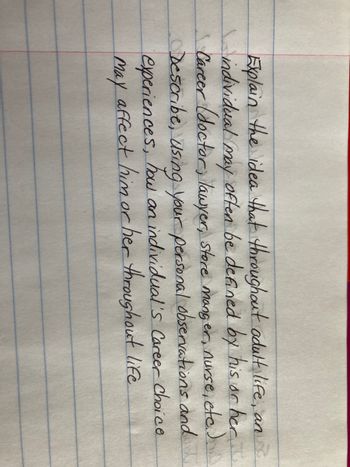 Explain the idea that throughout adult life, an
individual may often be defined by his or her
Career (doctor, lawyer, store manger, nurse, etc.)
Describe, using your personal observations and
experiences, how an individual's Career choice
may affect him or her throughout life